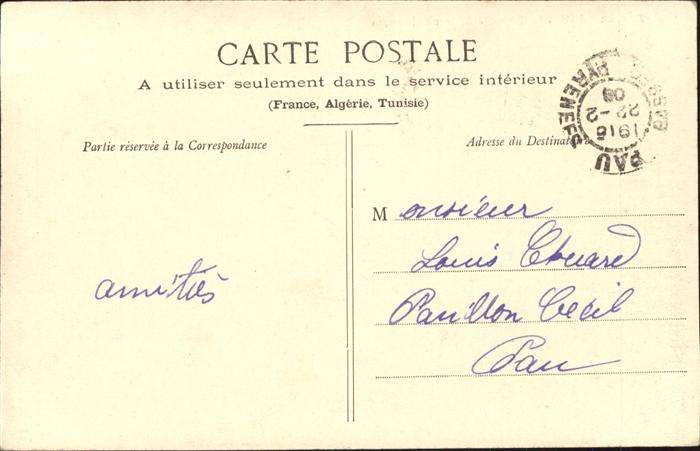 CARTE POSTALE
A utiliser seulement dans le service intérieur
(France, Algérie, Tunisie)
Partie réservée à la Correspondance
Adresse du Destinataire
PAU
1916
22-2
09
BASSES PYRENEES
amitiés
Monsieur
Louis
Pavillon Cecil
Pau